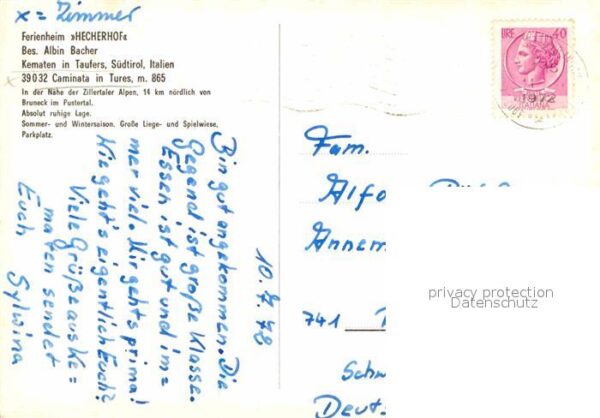 x = Zimmer
Ferienheim »HECHERHOF«
Bes. Albin Bacher
Kematen in Taufers, Südtirol, Italien
39032 Caminata in Tures, m. 865
In der Nähe der Zillertaler Alpen, 14 km nördlich von
Bruneck im Pustertal.
Absolut ruhige Lage.
Sommer- und Wintersaison. Große Liege- und Spielwiese,
Parkplatz.
10.7.72
Bin gut angekommen. Die
Gegend ist große Klasse.
Essen ist gut und im=
mer viel. Mir gehts prima!
Wie geht's eigentlich Euch?
Viele Grüße aus Ke=
maten sendet
Euch Sylvina
LIRE 40
1972
ITALIANA
Fam.
Alfo
Annem
741
Schw
Deut
privacy protection
Datenschutz